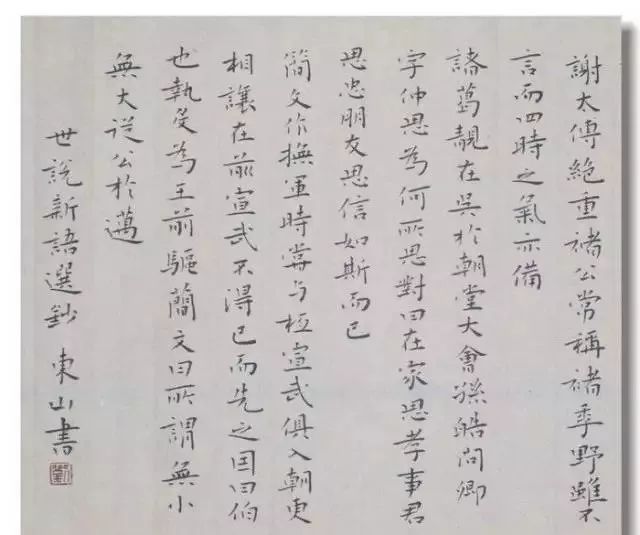 謝太傅絕重褚公常稱褚季野雖不
言而四時之氣亦備
諸葛靚在吳於朝堂大會孫皓問卿
字仲思為何所思對曰在家思孝事君
思忠朋友思信如斯而已
簡文作撫軍時嘗与桓宣武俱入朝更
相讓在前宣武不得已而先之因曰伯
也執殳為王前驅簡文曰所謂無小
無大從公於邁
世說新語選鈔 東山書